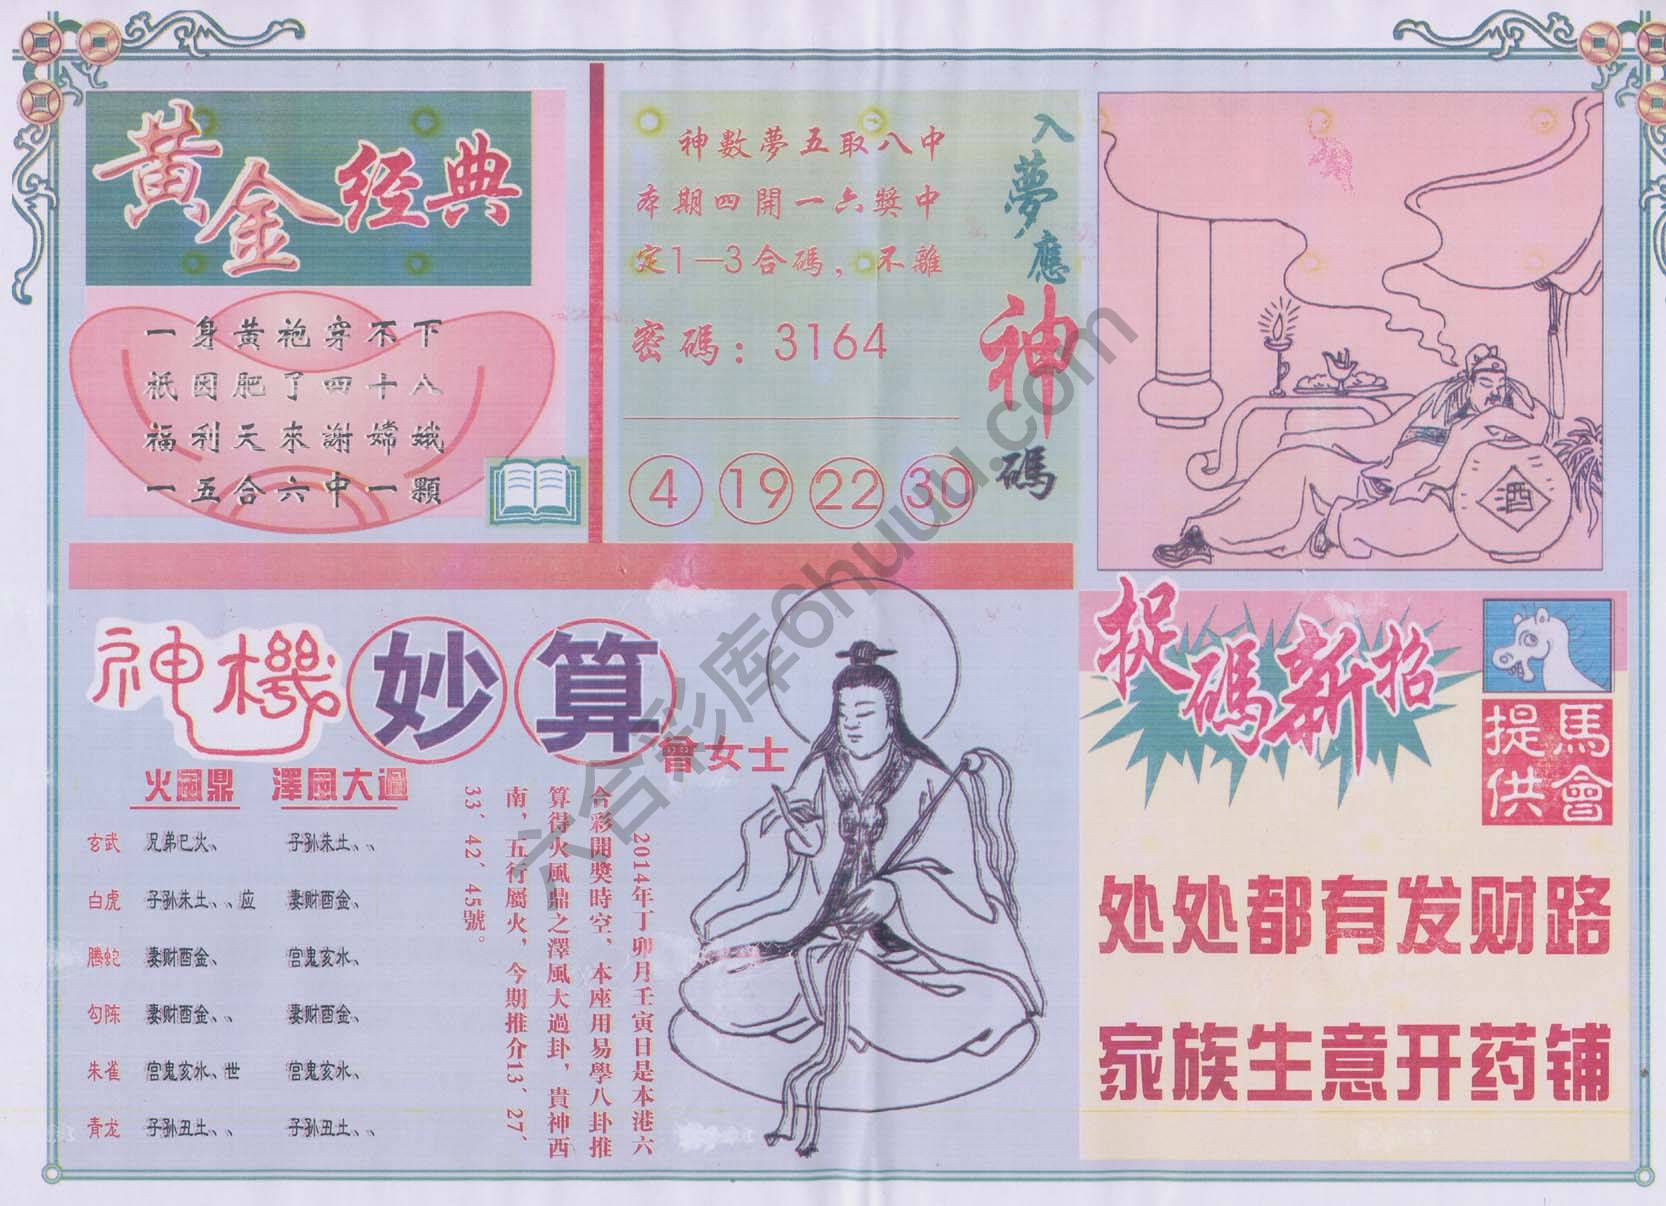 黄金经典
一身黄袍穿不下
祇因肥了四十八
福利天來謝嫦娥
一五合六中一顆
神數夢五取八中
本期四開一六獎中
定1—3合碼，不離
密碼：3164
4 19 22 30
入夢應神碼
酒
神機妙算
曾女士
火風鼎 澤風大過
玄武 兄弟巳火、 子孙未土、、
白虎 子孙未土、、应 妻财酉金、
腾蛇 妻财酉金、 官鬼亥水、
勾陈 妻财酉金、、 妻财酉金、
朱雀 官鬼亥水、世 官鬼亥水、
青龙 子孙丑土、、 子孙丑土、、
2014年丁卯月壬寅日是本港六
合彩開獎時空，本座用易學八卦推
算得火風鼎之澤風大過卦，貴神西
南，五行屬火，今期推介13、27、
33、42、45號。
捉碼新招
馬會提供
处处都有发财路
家族生意开药铺
六合彩库6huu.com